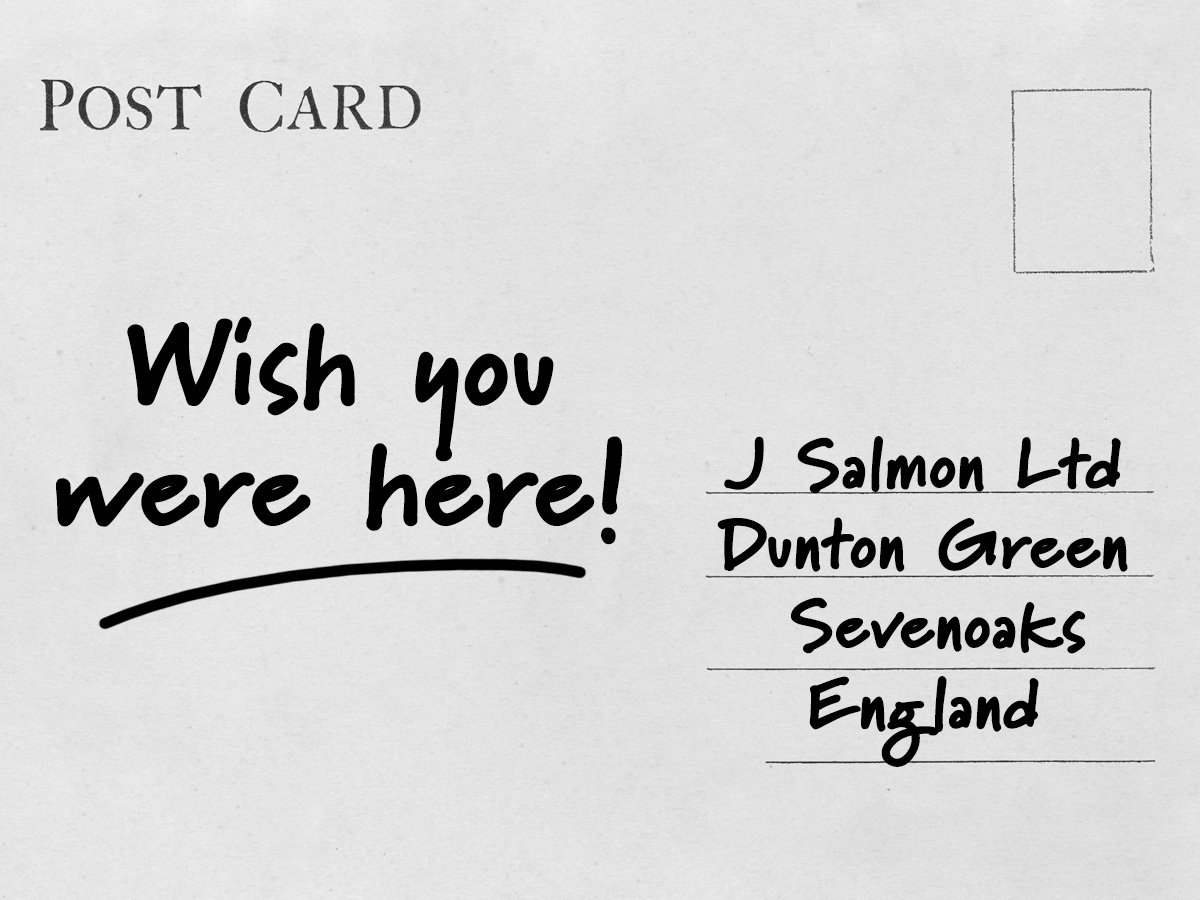 POST CARD
Wish you
were here!
J Salmon Ltd
Dunton Green
Sevenoaks
England